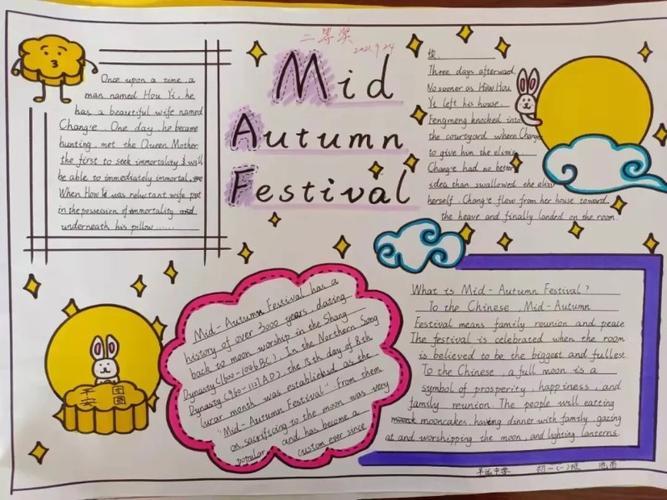 二等奖
2021.9.24
Mid
Autumn
Festival
Once upon a time, a
man named Hou Yi, he
has a beautiful wife named
Chang'e. One day, he became
hunting, met the Queen Mother
the first to seek immortality & will
be able to immediately immortal,
When Hou Yi was reluctant wife put
in the possession of immortality and
underneath his pillow......
Three days afterward,
No sooner as How Hou
Ye left his house
Fengmeng knocked into
the courtyard where Chang
to give him the elixir
Chang'e had no better
idea than swallowed the elixir
herself. Chang'e flew from her house toward
the heave and finally landed on the room.
Mid-Autumn Festival has a
history of over 3000 years, dating
back to moon worship in the Shang
Dynasty (1600-1046BC). In the Northern Song
Dynasty (960-1127AD), the 15th day of 8th
lunar month was established as the
"Mid-Autumn Festival". From them
on, sacrificing to the moon was very
popular, and has become a
custom ever since
What is Mid-Autumn Festival?
To the Chinese, Mid-Autumn
Festival means family reunion and peace
The festival is celebrated when the room
is believed to be the biggest and fullest
To the Chinese, a full moon is a
symbol of prosperity, happiness, and
family reunion. The people will eating
mooncakes, having dinner with family, gazing
at and worshipping the moon, and lighting lanterns.
平安
团圆